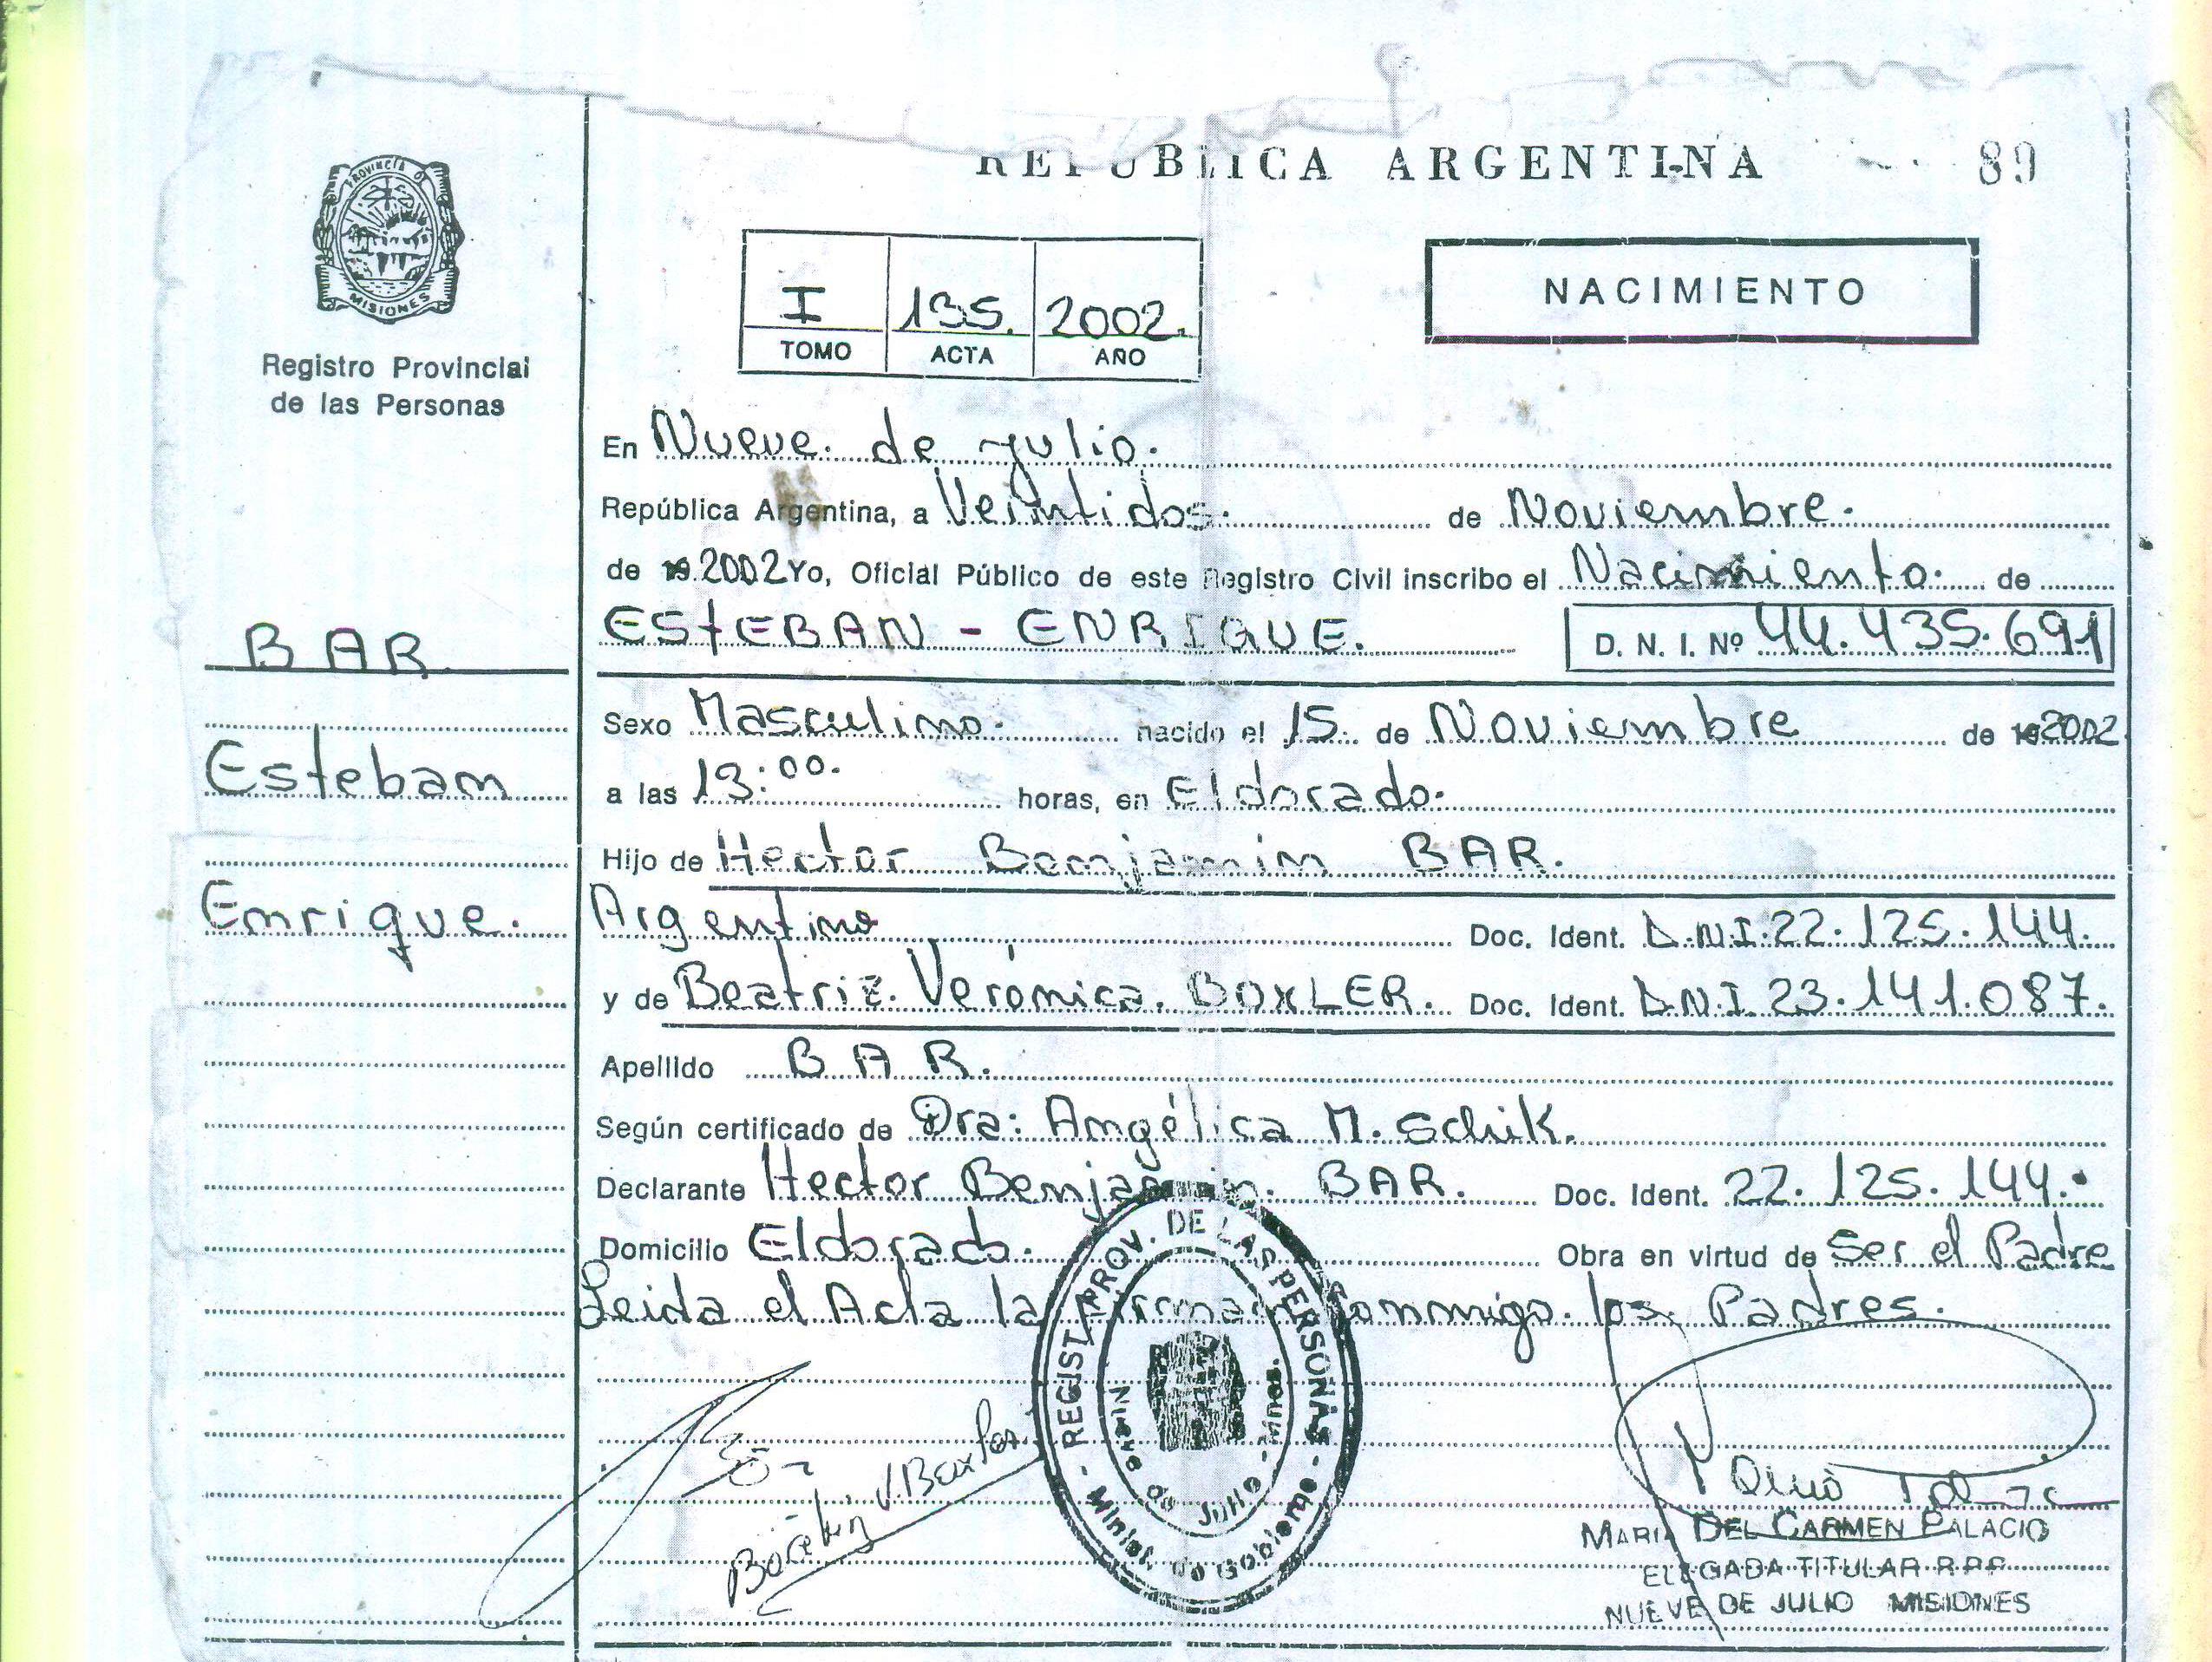 REPUBLICA ARGENTINA
89
PROVINCIA DE
MISIONES
Registro Provincial
de las Personas
I 135. 2002.
TOMO ACTA AÑO
NACIMIENTO
En Nueve de Julio.
República Argentina, a Veintidos. de Noviembre.
de 19 2002 Yo, Oficial Público de este Registro Civil inscribo el Nacimiento. de
ESTEBAN - ENRIQUE. D. N. I. Nº 44.435.691
BAR
Sexo Masculino. nacido el 15. de Noviembre de 19 2002
Esteban
a las 13:00. horas, en Eldorado.
Hijo de Hector Benjamin BAR.
Enrique.
Argentino Doc. Ident. D.N.I. 22.125.144.
y de Beatriz. Verónica. BOXLER. Doc. Ident. D.N.I. 23.141.087.
Apellido BAR.
Según certificado de Dra: Angélica M. Schik.
Declarante Hector Benjamin. BAR. Doc. Ident. 22.125.144.
Domicilio Eldorado. Obra en virtud de Ser el Padre
Leida el Acta la firman conmigo los Padres.
REGIST. PROV. DE LAS PERSONAS
Nueve de Julio - Mnes.
- Minist. de Gobierno -
MARIA DEL CARMEN PALACIO
ELEGADA TITULAR R.P.P.
NUEVE DE JULIO MISIONES